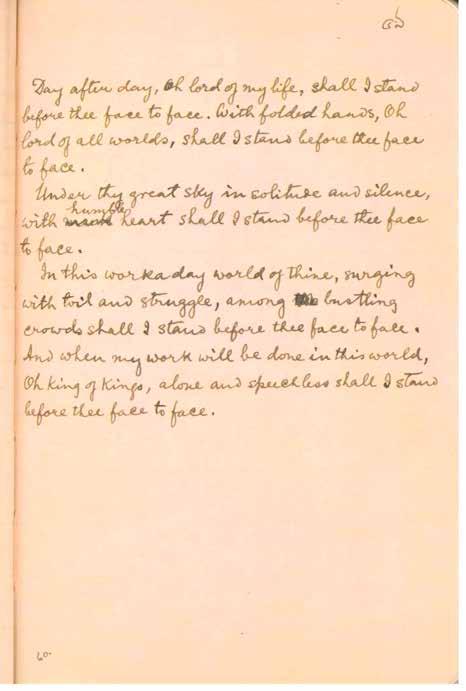 Day after day, Oh lord of my life, shall I stand
before thee face to face. With folded hands, Oh
lord of all worlds, shall I stand before thee face
to face.
Under thy great sky in solitude and silence,
humble
with heart shall I stand before thee face
to face.
In this workaday world of thine, surging
with toil and struggle, among bustling
crowds shall I stand before thee face to face.
And when my work will be done in this world,
Oh King of Kings, alone and speechless shall I stand
before thee face to face.
60.